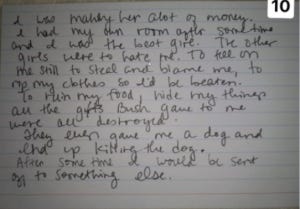 10
I was making her alot of money.
I had my own room after some time
and I was the best girl. The other
girls were to hate me. To tell on
me still to steal and blame me, to
rip my clothes so I'd be beaten.
To ruin my food, hide my things
all the gifts Bush gave to me
were all destroyed.
They even gave me a dog and
end up killing the dog.
After some time I would be sent
off to something else.